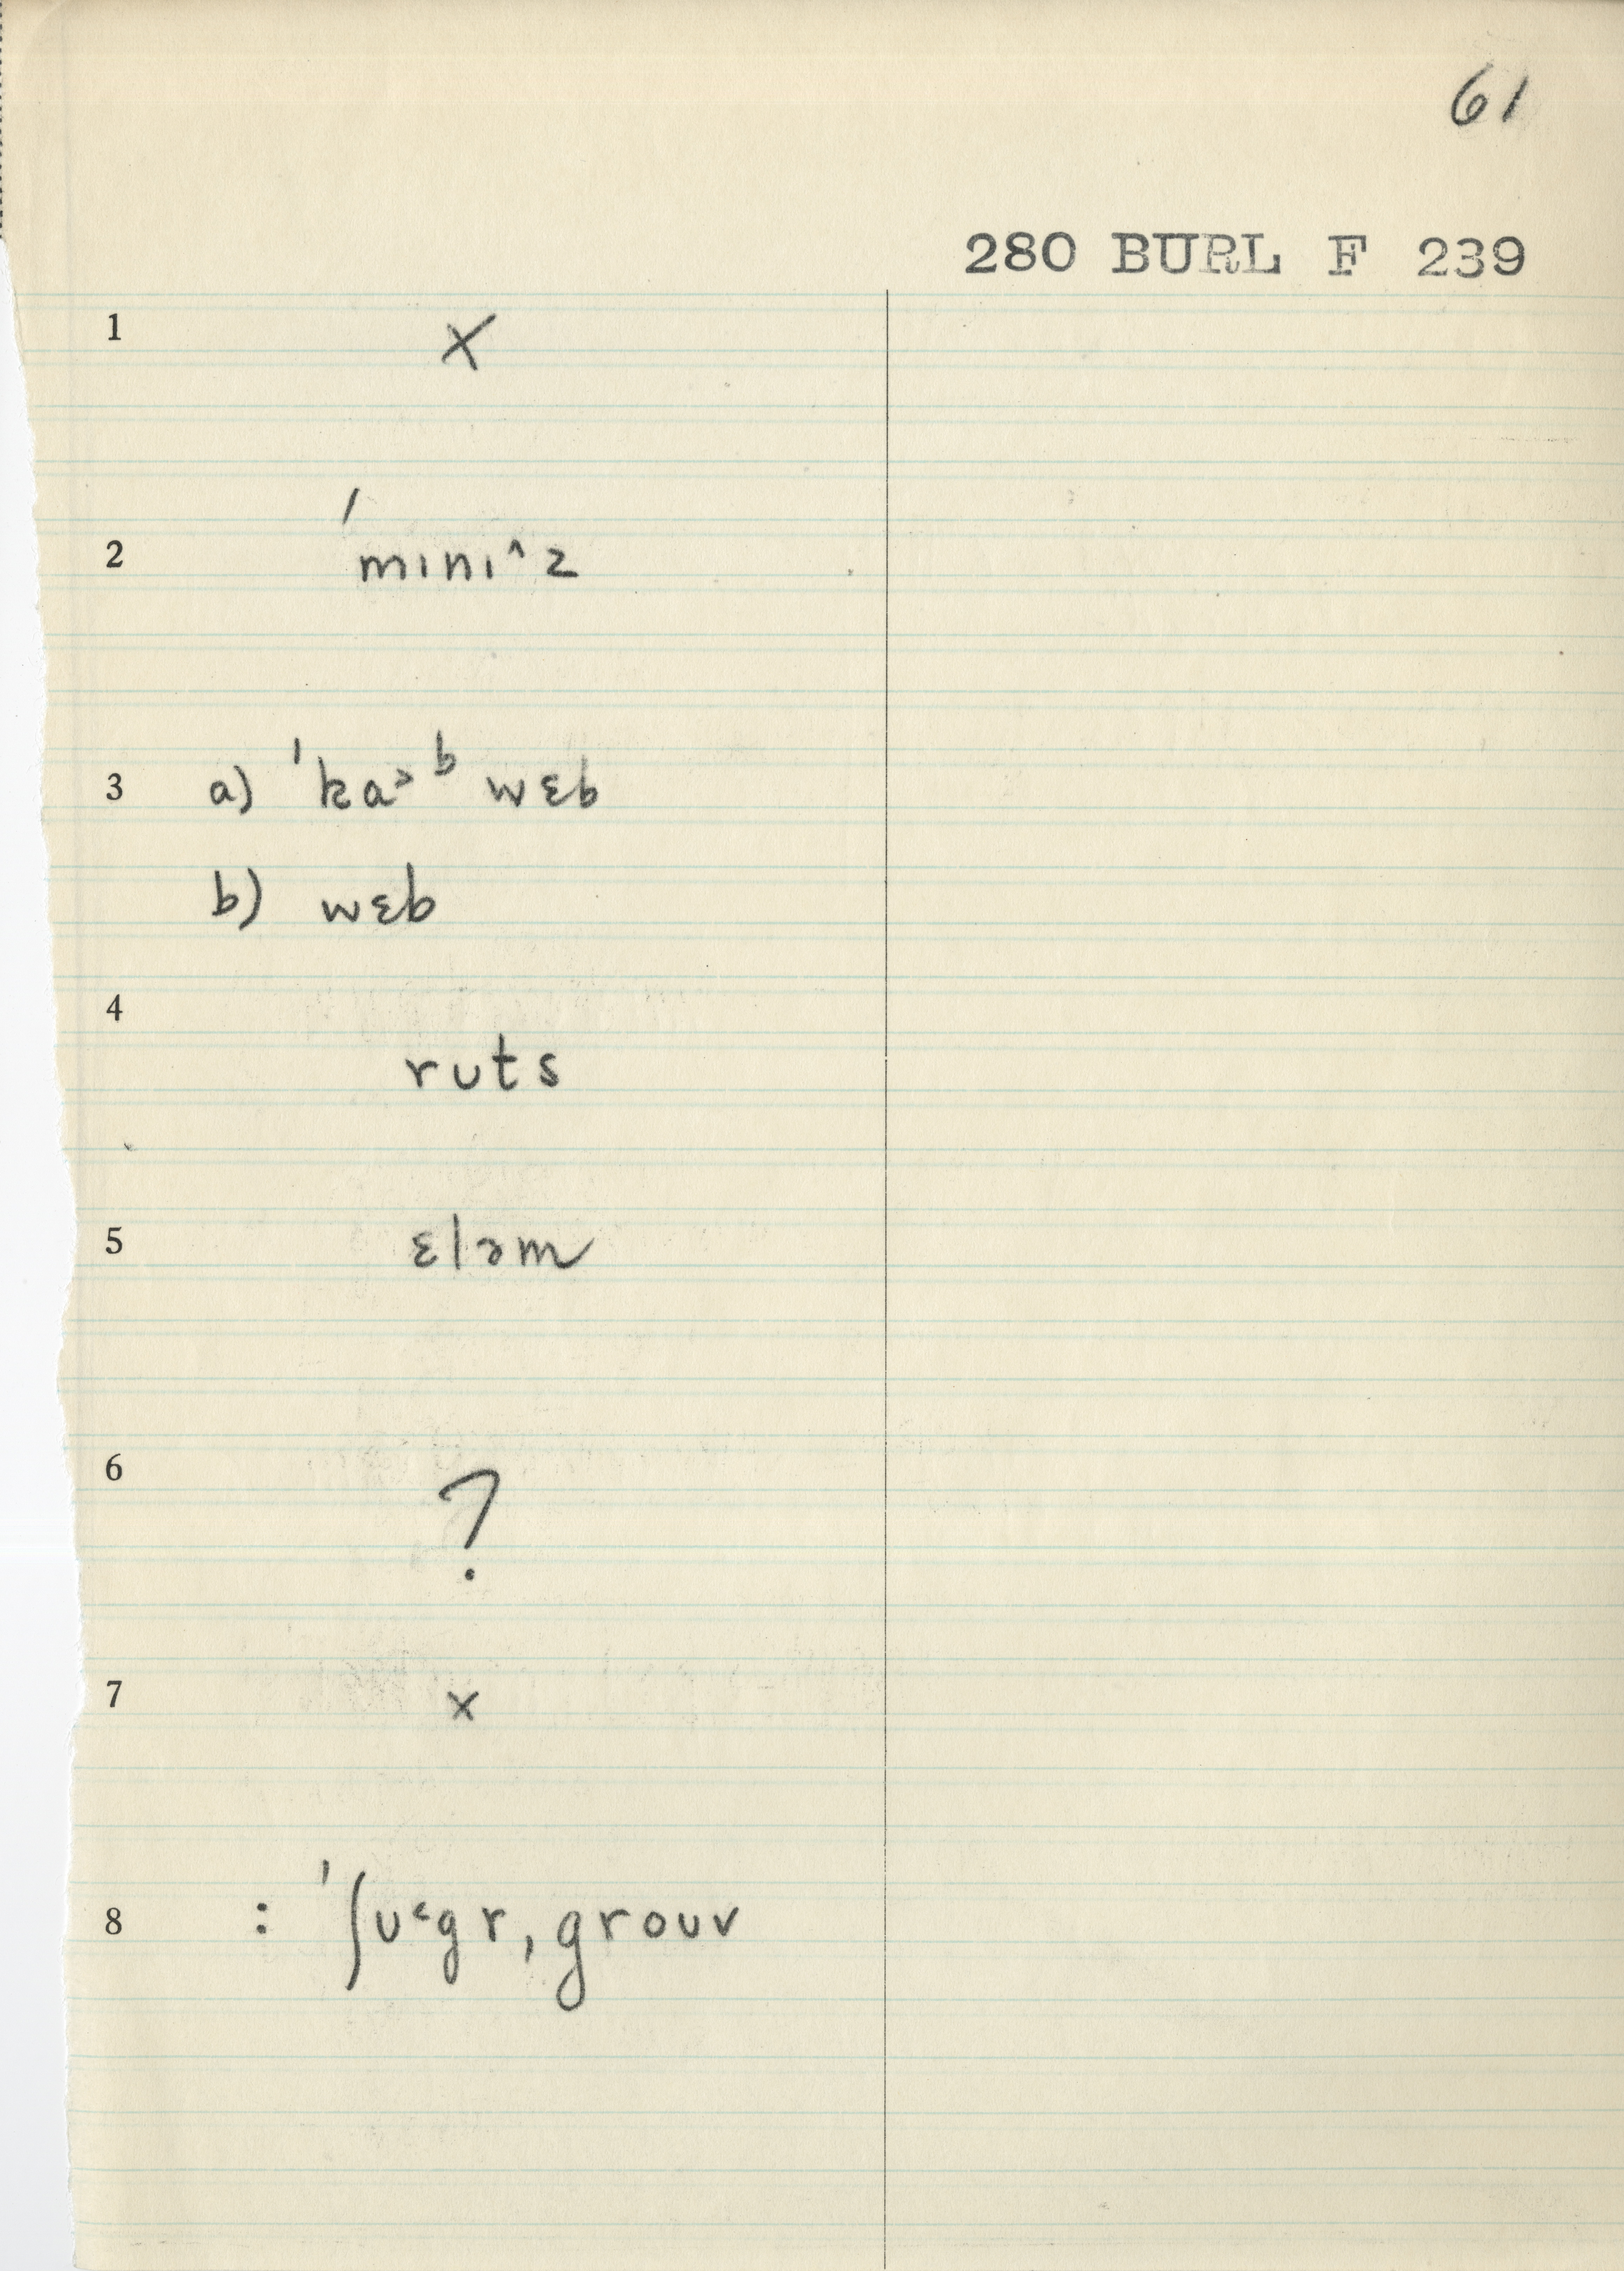 61
280 BURL F 239
1 x
2 ˈmɪnɪ^z
3 a) ˈka˃ᵇ wɛb
b) wɛb
4 ruts
5 ɛləm
6 ?
7 x
8 : ˈʃᴜ˂gr, grouv